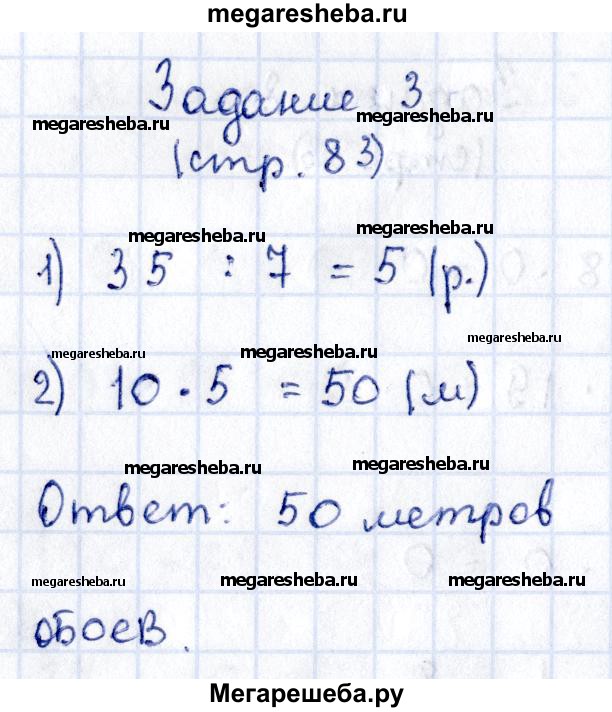 megaresheba.ru
Задание 3
megaresheba.ru megaresheba.ru
(стр. 83)
megaresheba.ru megaresheba.ru
1) 35 : 7 = 5 (р.)
megaresheba.ru megaresheba.ru megaresheba.ru
2) 10 · 5 = 50 (м)
megaresheba.ru megaresheba.ru
Ответ: 50 метров
megaresheba.ru megaresheba.ru megaresheba.ru
обоев.
Мегарешеба.ру